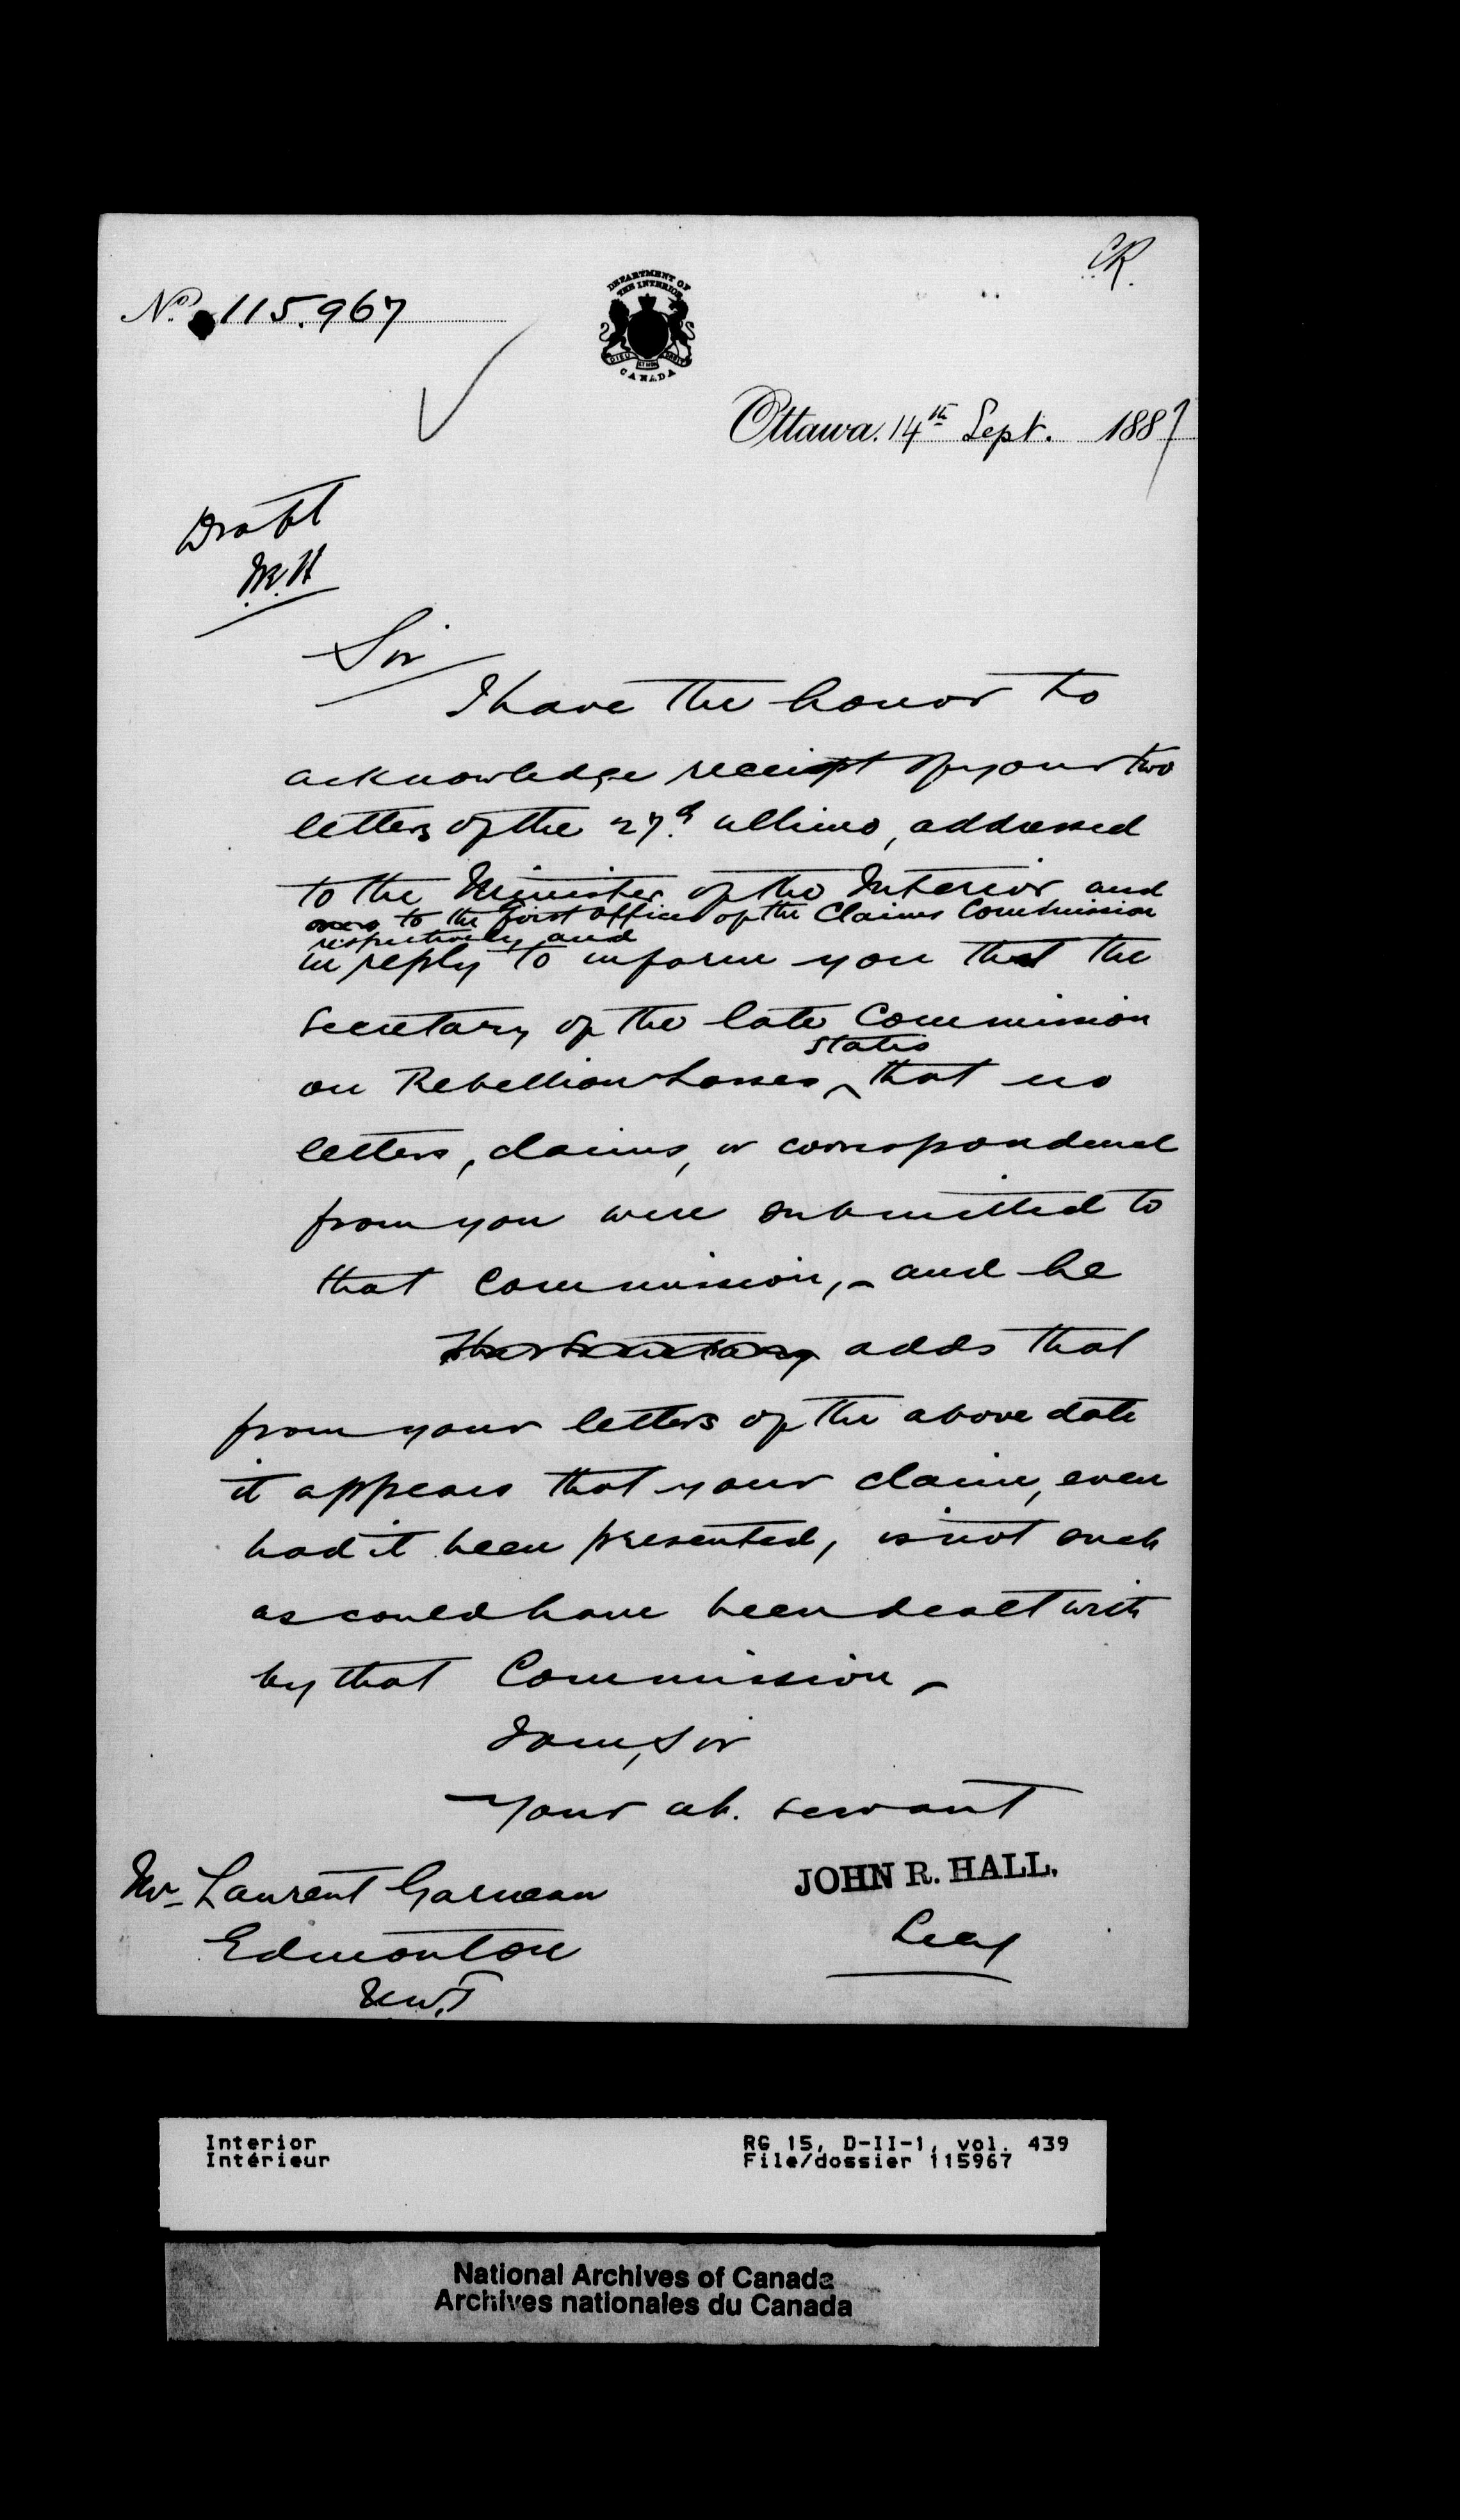 CR.
No. 115.967
DEPARTMENT OF
THE INTERIOR
CANADA
Ottawa. 14th Sept. 1887
Draft
M.H
Sir
I have the honor to
acknowledge receipt of your two
letters of the 27th ultimo, addressed
to the Minister of the Interior and
to the first officer of the Claims Commission
respectively and
in reply to inform you that the
Secretary of the late Commission
states
on Rebellion Losses ^ that no
letters, claims, or correspondence
from you were submitted to
that Commission, - and he
The Secretary adds that
from your letters of the above date
it appears that your claim, even
had it been presented, is not such
as could have been dealt with
by that Commission -
I am, Sir
Your ob. servant
JOHN R. HALL.
Secy
Mr Laurent Garneau
Edmonton
N.W.T
Interior
Intérieur
RG 15, D-II-1, vol. 439
File/dossier 115967
National Archives of Canada
Archives nationales du Canada